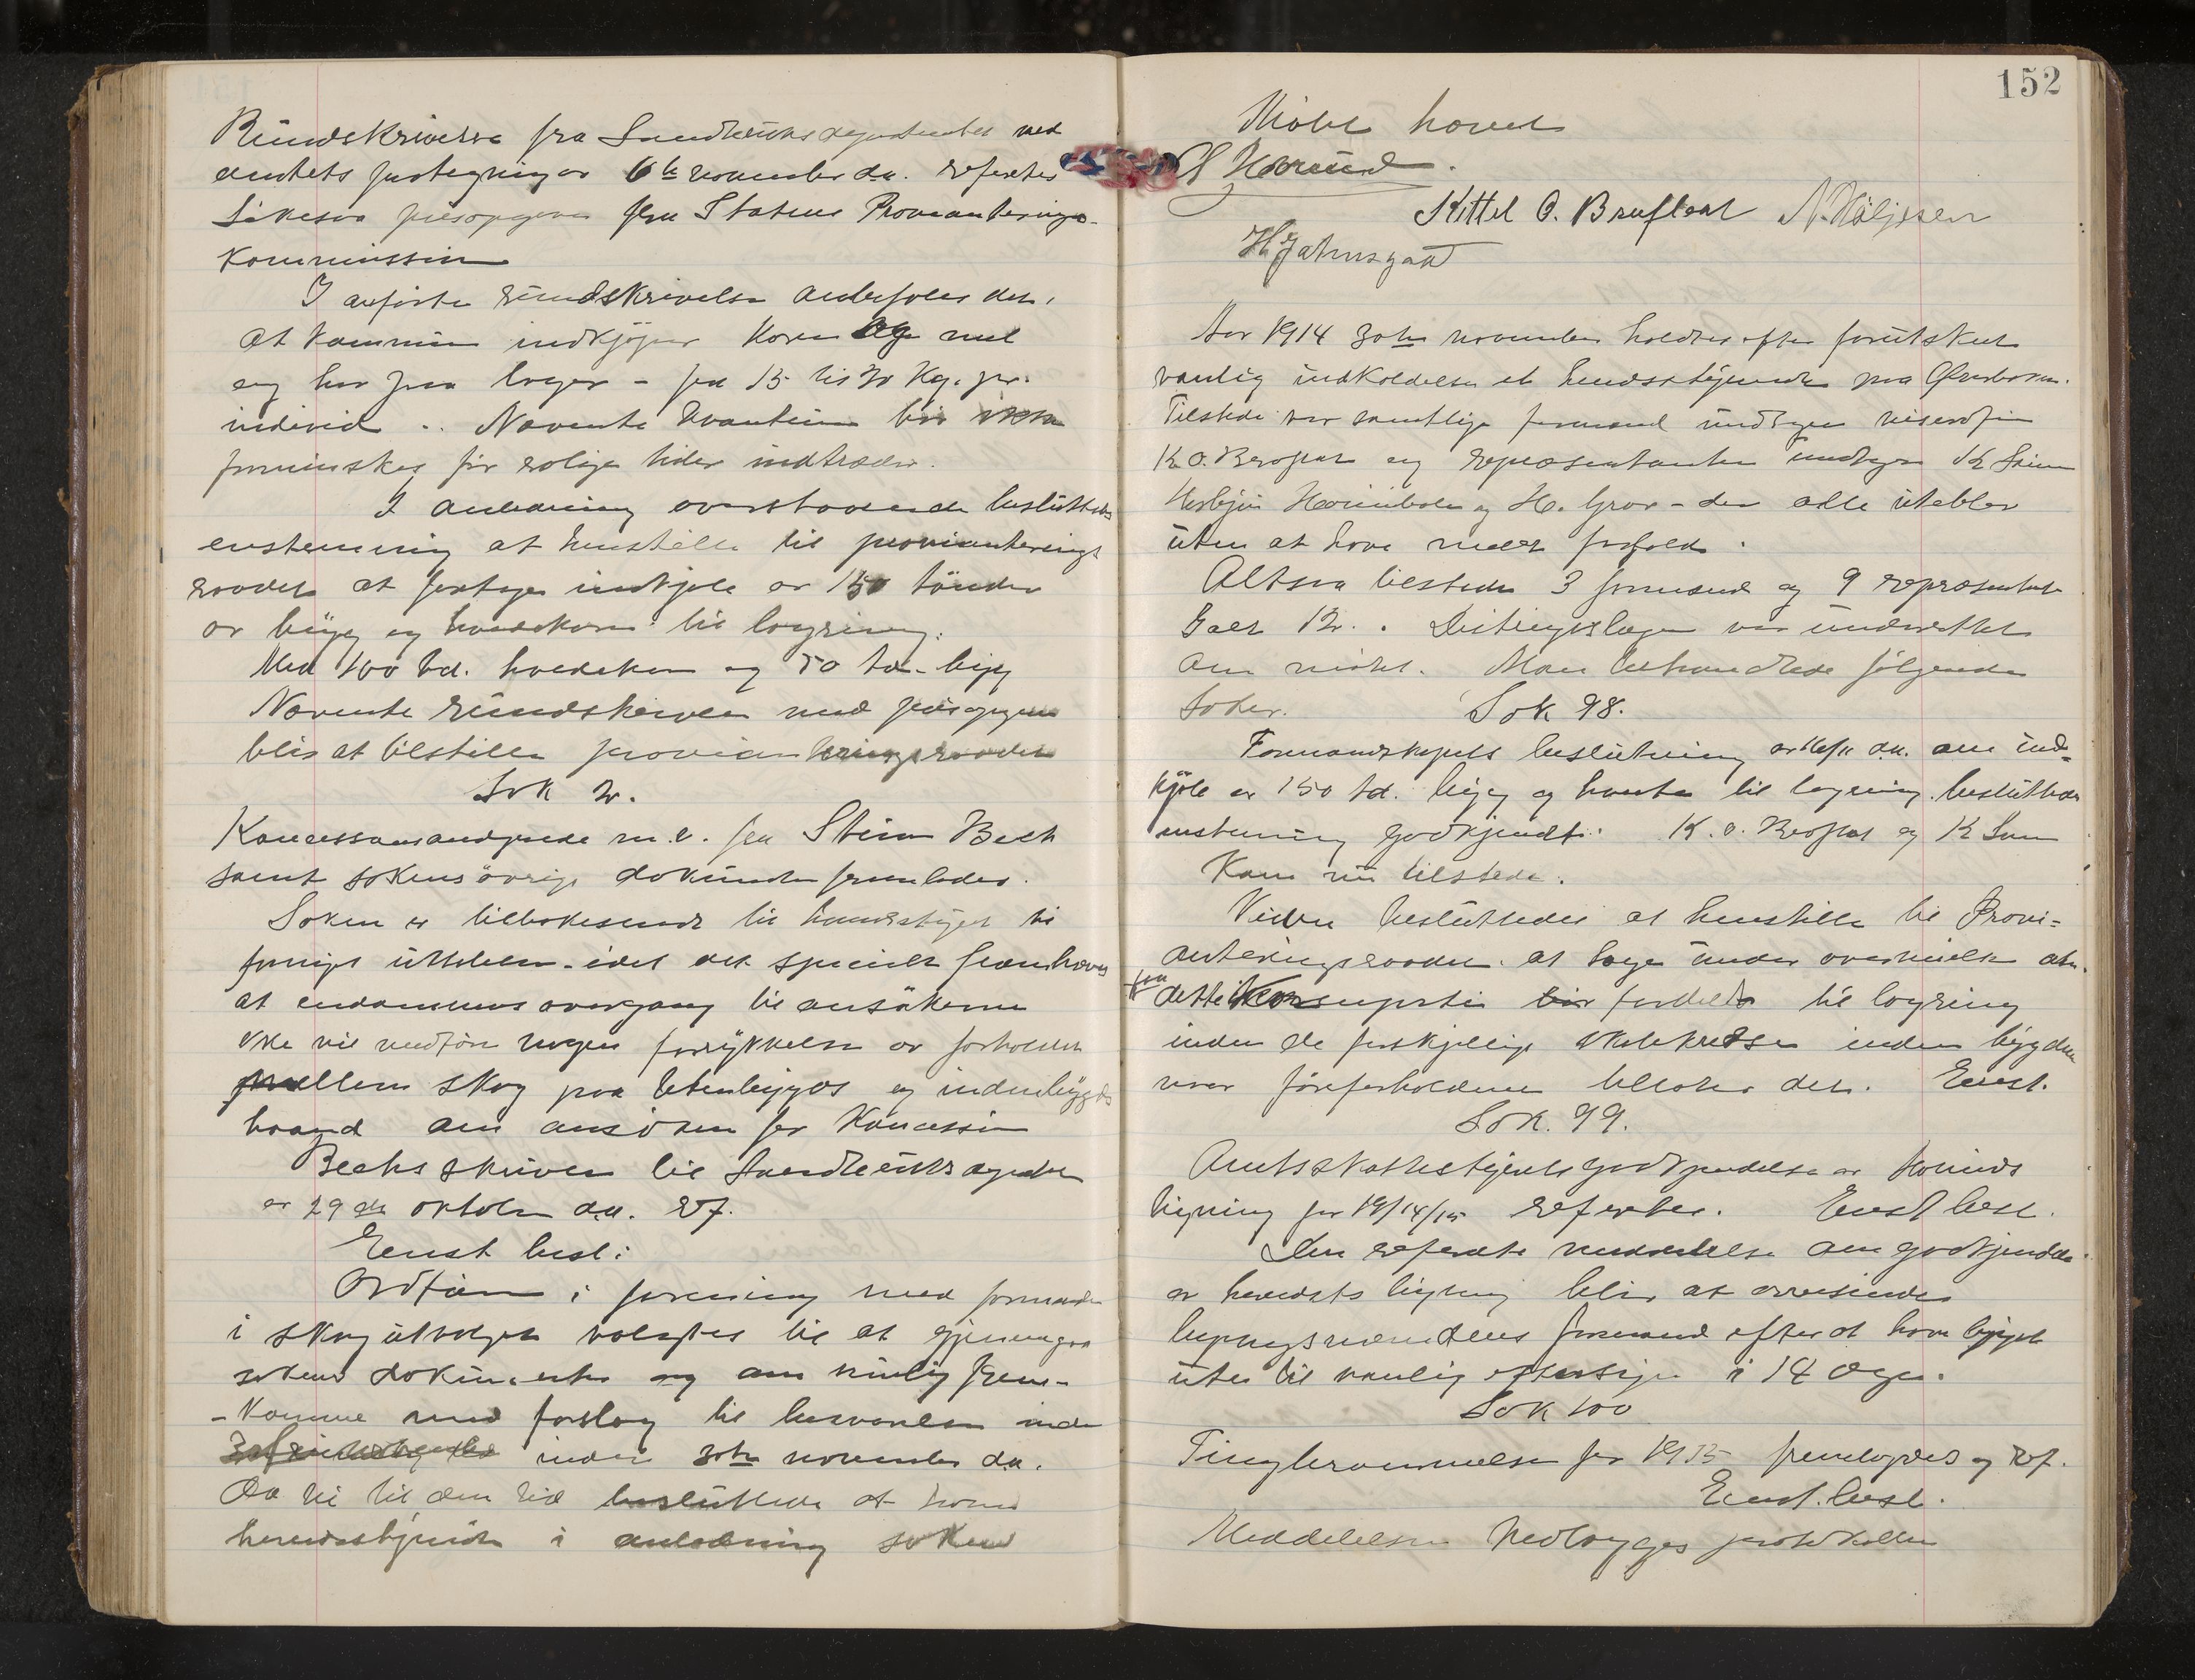 Rundskrivelse fra Landbruksdepartementet med
amtets paategning av 6te november d.a. refertes
Likesaa prisopgave fra Statens Provianterings-
kommission
I anførte rundskrivelse anbefales det,
at kommunen indkjøper korn og mel
og har paa lager - fra 15 til 20 Kg. pr.
individ .. Nævnte kvantum bør ikke
forminskes før rolige tider indtræder.
I anledning ovenstaaende besluttedes
enstemmig at henstille til provianterings
raadet at foretage indkjøb av 150 tønder
av byg og hvedekorn til lagring.
Med 100 td. hvedekorn og 50 td. byg
Nævnte rundskrivelse med prisopgave
blir at tilstille provianteringsraadet
Sak 2.
Koncessionsandragende m.v. fra Stein Bech
samt sakens øvrige dokumenter fremlades.
Saken er tilbakesendt til herredsstyret til
fornyet uttalelse - idet det specielt fremhæves
at eiendommens overgang til ansøkeren
ikke vil medføre nogen forrykkelse av forholdet
mellem skog paa utenbygds og indenbygds
haand om ansøkeren faar koncession
Bechs skrivelse til Landbruksdepartementet
av 29de oktober d.a. ref.
Eenst besl:
Ordføreren i forening med formanden
i skogutvalget valgtes til at gjennemgaa
sakens dokumenter og om mulig frem-
- komme med forslag til besvarelse inden
inden 30te november d.a.
Da vil til den tid besluttedes at holde
herredsstyremøte i anledning saken

152
Møtet hævet
H Hovrud.
Kittel O. Bruflat N. Høljesen
H Jahnsgaard
Aar 1914 30te november holdtes efter forutskut
vanlig indkaldelse et herredsstyremøte paa
Tilstede var samtlige formænd undtagen viseordfører
K.O. og repræsentanter undtagen K
og H. Grov - der alle uteblev
uten at have meldt forfald.
Altsaa tilstede 3 formænd og 9 repræsentanter
Ialt 12. . Distriktslægen var underrettet
om møtet. Man behandlede følgende
saker. Sak 98.
Formandskapets beslutning av 16/11 d.a. om ind-
kjøb av 150 td. byg og hvete til lagring. besluttedes
enstemmig godkjendt. K.O. og K
Kom nu tilstede.
Videre besluttedes at henstille til Provi-
anteringsraadet. at tage under overveielse at
faa dette kornparti fordelt til lagring
inden de forskjellige skolekredse inden bygden
naar føreforholdene tillater det. Eenst.
Sak. 99.
Amtsskattestyrets godkjendelse av Herreds
ligning for 19/14/15 refertes. Eenst besl.
Den referte meddelelse om godkjendelse
av herredets ligning blir at oversende
ligningsnævndens formand efter at have ligget
ute til vanlig eftersyn i 14 dage.
Sak 100
Tingberammelsen for 1915 fremlagdes og ref.
Eenst. besl.
Meddelelsen vedlægges protokollen